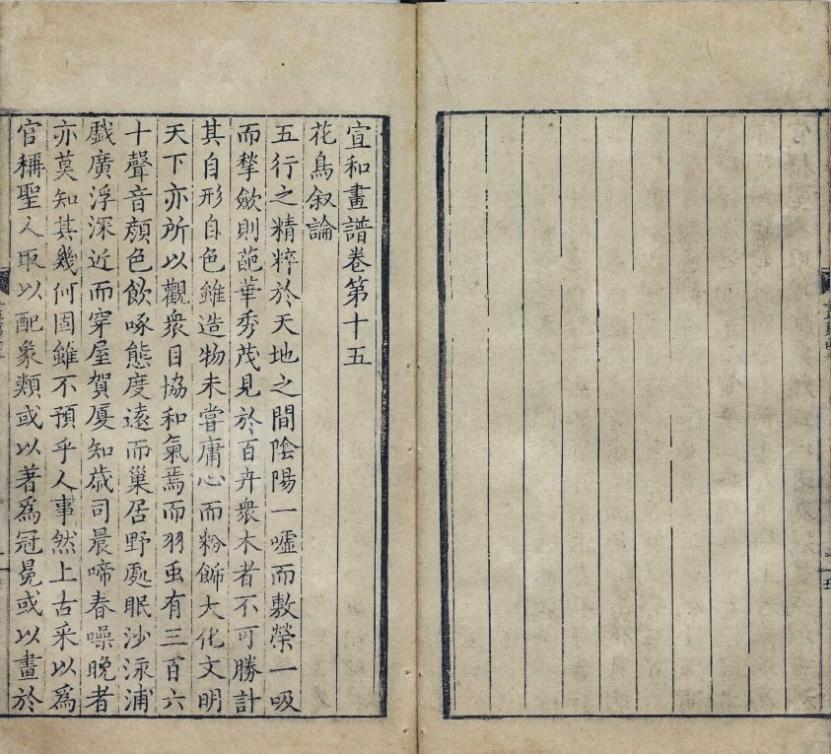 宣和畫譜卷第十五
花鳥叙論
五行之精粹於天地之間陰陽一噓而敷榮一吸
而揫歛則葩華秀茂見於百卉衆木者不可勝計
其自形自色雖造物未嘗庸心而粉飾大化文明
天下亦所以觀衆目協和氣焉而羽虫有三百六
十聲音顔色飲啄態度遠而巢居野處眠沙泳浦
戲廣浮深近而穿屋賀厦知歳司晨啼春噪晚者
亦莫知其幾何固雖不預乎人事然上古采以爲
官稱聖人取以配象類或以著爲冠冕或以畫於